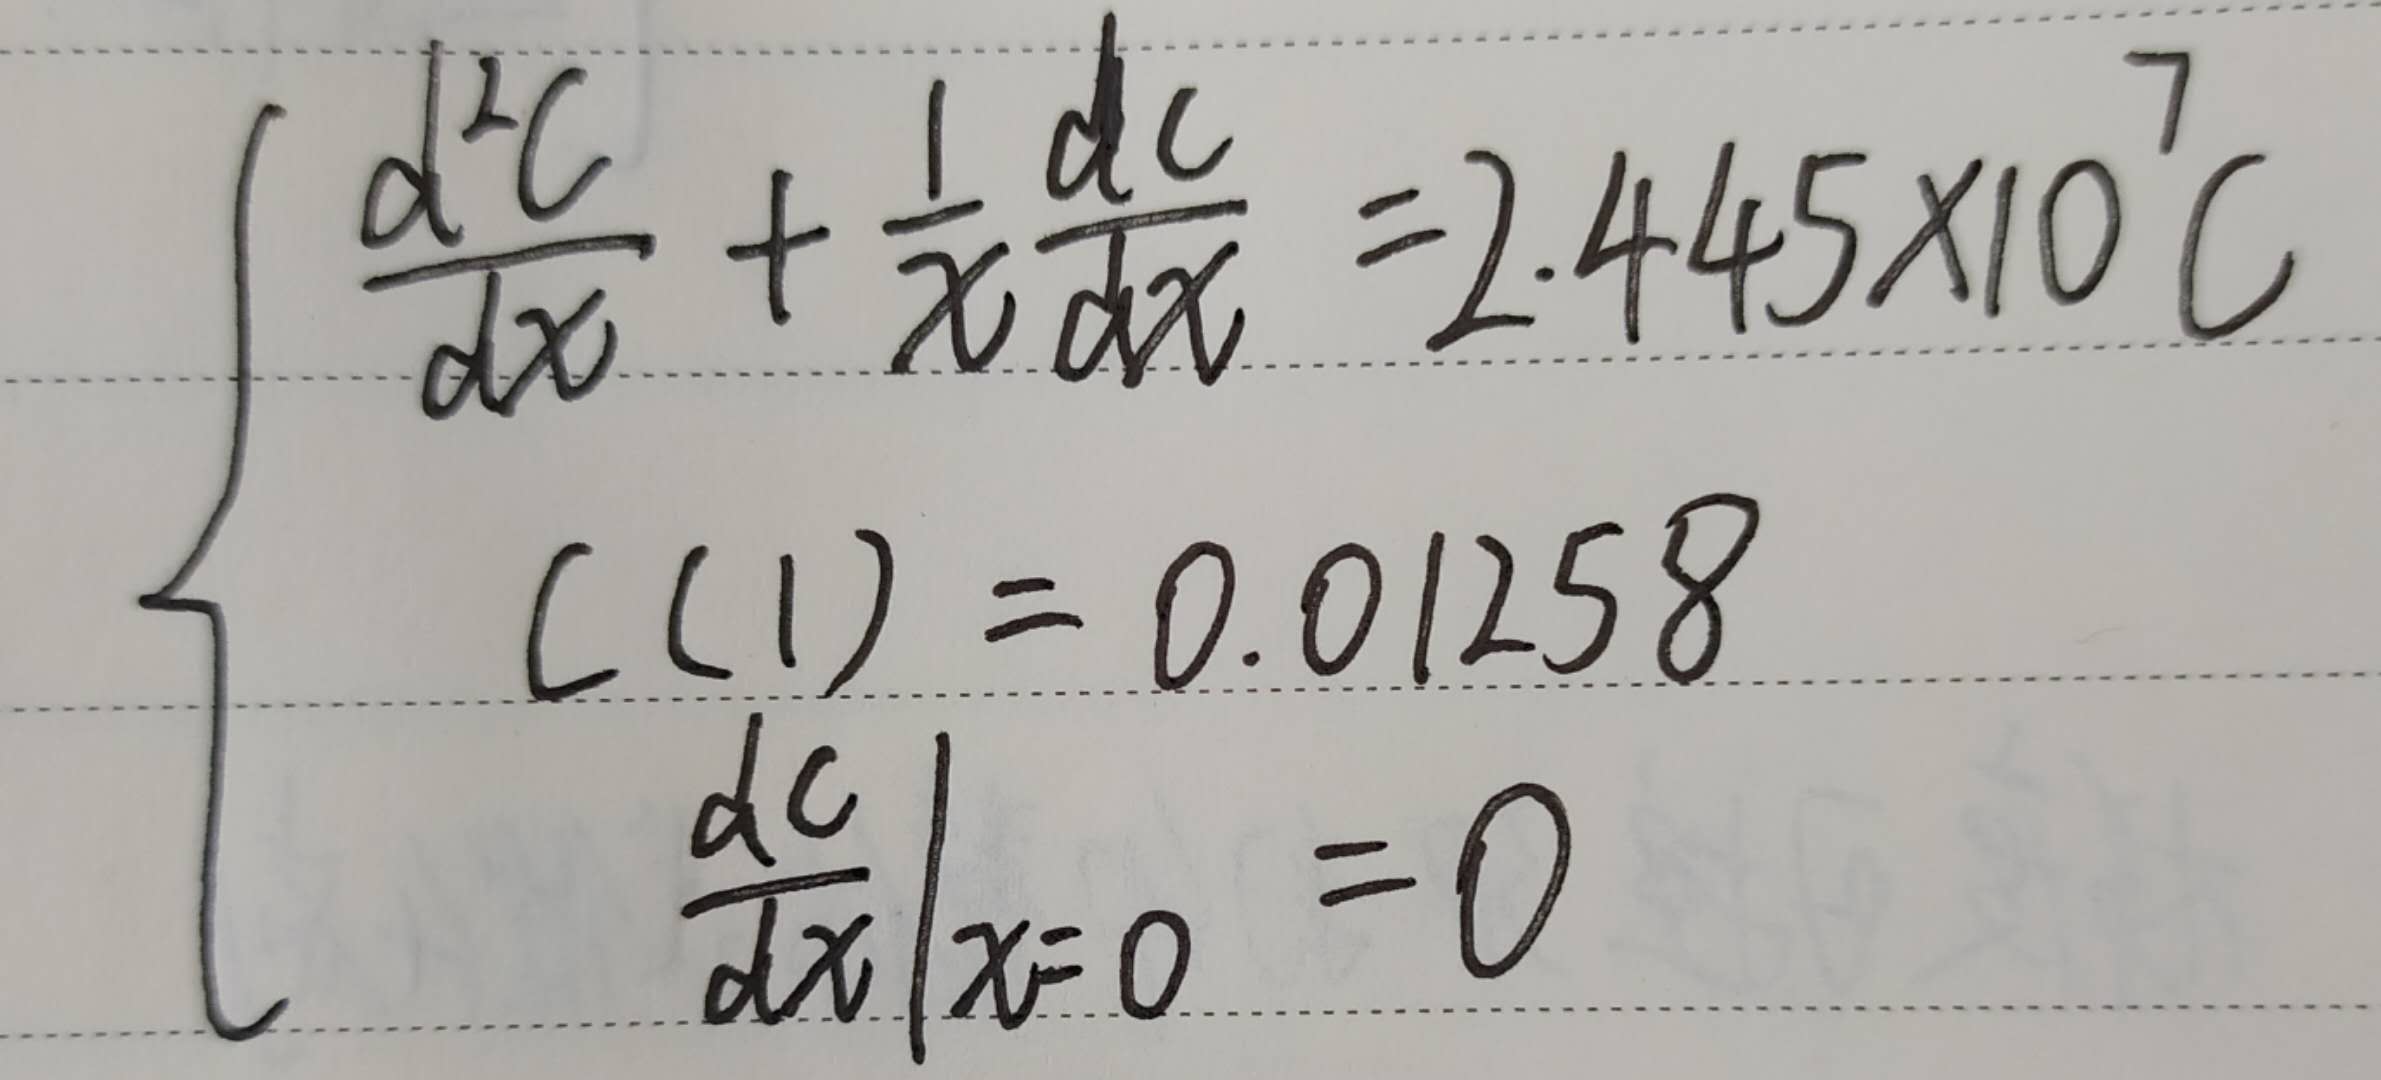 d²C/dx + 1/x dc/dx = 2.445×10⁷C
C(1) = 0.01258
dc/dx|x=0 = 0